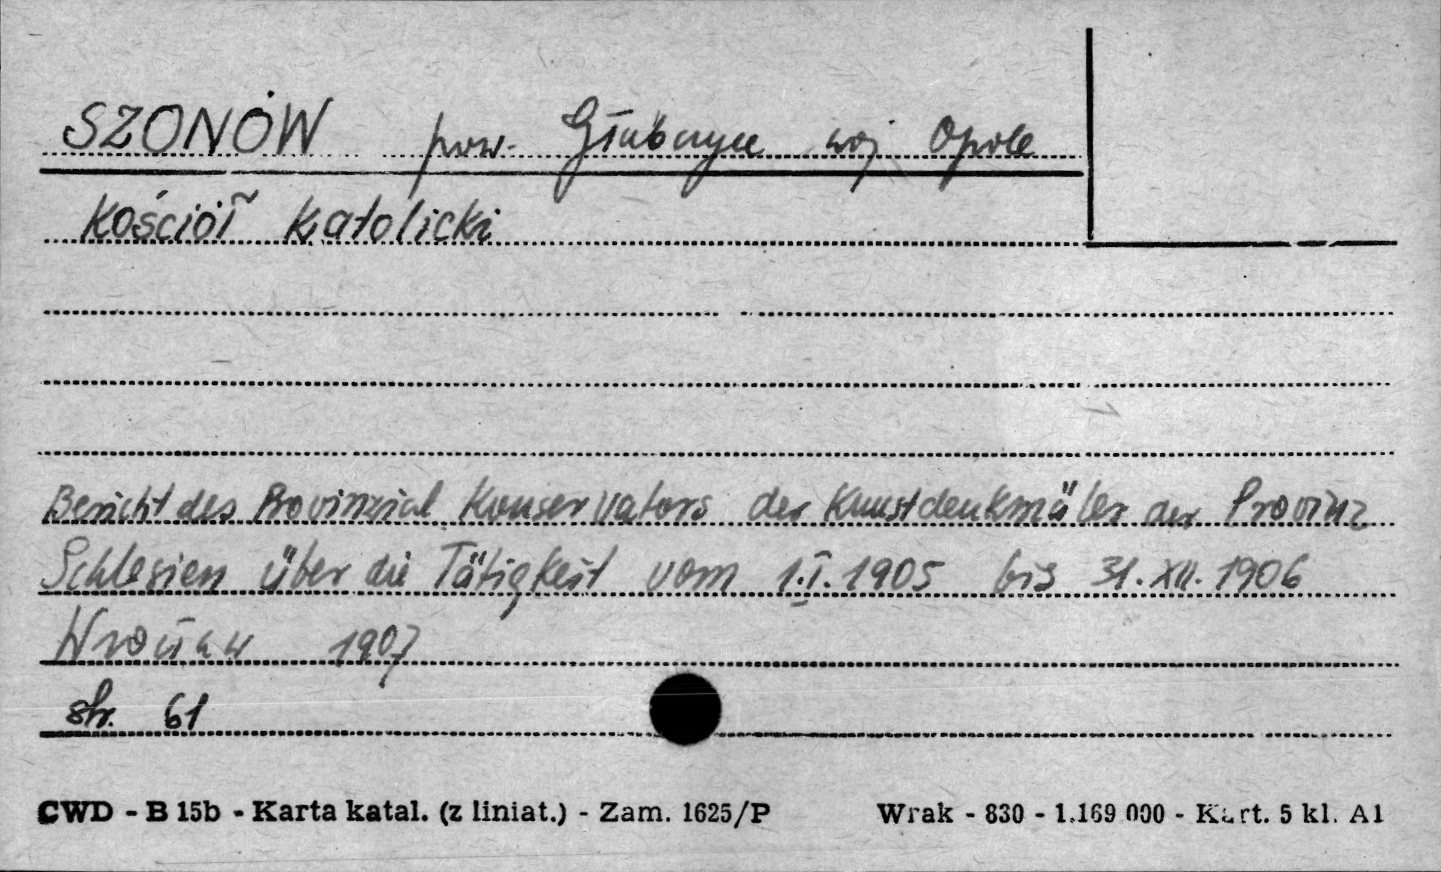 SZONÓW pow. Głubczyce woj Opole
Kościół Katolicki
Bericht des Provinzial Konservators der Kunstdenkmäler der Provinz
Schlesien über die Tätigkeit vom 1.I.1905 bis 31.XII.1906
Wrocław 1907
str. 61
CWD - B 15b - Karta katal. (z liniat.) - Zam. 1625/P Wrak - 830 - 1.169 000 - Kart. 5 kl. A1